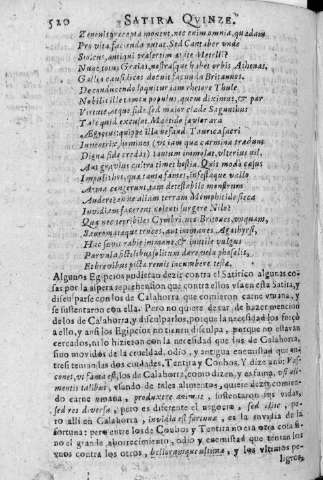 520 SATIRA QVINZE.
Zenonis præcepta monent, nec enim omnia, quædam
Pro vita facienda putat. Sed Cantaber unde
Stoicus, antiqui præsertim ætate Metelli?
Nunc totus Graias, nostrasque habet orbis Athenas,
Gallia causidicos docuit facunda Britannos.
De conducendo loquitur iam rhetore Thule.
Nobilis ille tamen populus, quem diximus, & par
Virtute, atque fide sed maior clade Saguntus
Tale quid excusat. Mæotide sævior ara
Ægyptus: quippe illa nefandi Taurica sacri
Inventrix, homines (ut iam quæ carmina tradunt
Digna fide credas) tantum immolat, ulterius nil,
Aut gravius cultro timet hostia. Quis modo casus
Impulit hos, quæ tanta fames, infestaque vallo
Arma coegerunt, tam detestabile monstrum
Audere? anne aliam terram Memphitide sicca
Invidiam facerent nolenti surgere Nilo?
Qua nec terribiles Cymbri, nec Britones, unquam,
Sauromatæque truces, aut immanes Agathyrsi,
Hac sævit rabie imbelle, & inutile vulgus
Parvula fictilibus solitum dare vela phaselis,
Et brevibus pictæ remis incumbere testæ.
Algunos Egipcios pudieran dezir contra el Satirico algunas co-
sas por la aspera reprehension que contra ellos usa en esta Satira, y
disculparse con los de Calahorra que comieron carne umana, y
se sustentaron con ella. Pero no quiere dexar de hazer mencion
de los de Calahorra, y disculparlos, porque la necessidad los forçò
a ello, y assi los Egipcios no tienen disculpa, porque no estavan
cercados, ni lo hizieron con la necessidad de los de Calahorra,
sino movidos de la crueldad, odio, y antigua enemistad que en-
tre si tenian las dos ciudades, Tentira y Conbos. Y dize assi: Vas-
cones, ut fama est, los de Calahorra, como dizen, y es fama, usi ali-
mentis talibus, usando de tales alimentos, quiere dezir, comien-
do carne umana, produxere animas, sustentaron sus vidas,
sed res diversa, pero es diferente el negocio, sed illic, pe-
ro alli en Calahorra, invidia est fortunæ, es la invidia de la
fortuna: pero entre los de Conbos y Tentira no era otra cosa si-
no el grande aborrecimiento, odio y enemistad que tenian los
unos contra los otros, bellorumque ultima, y los ultimos pe-
ligros